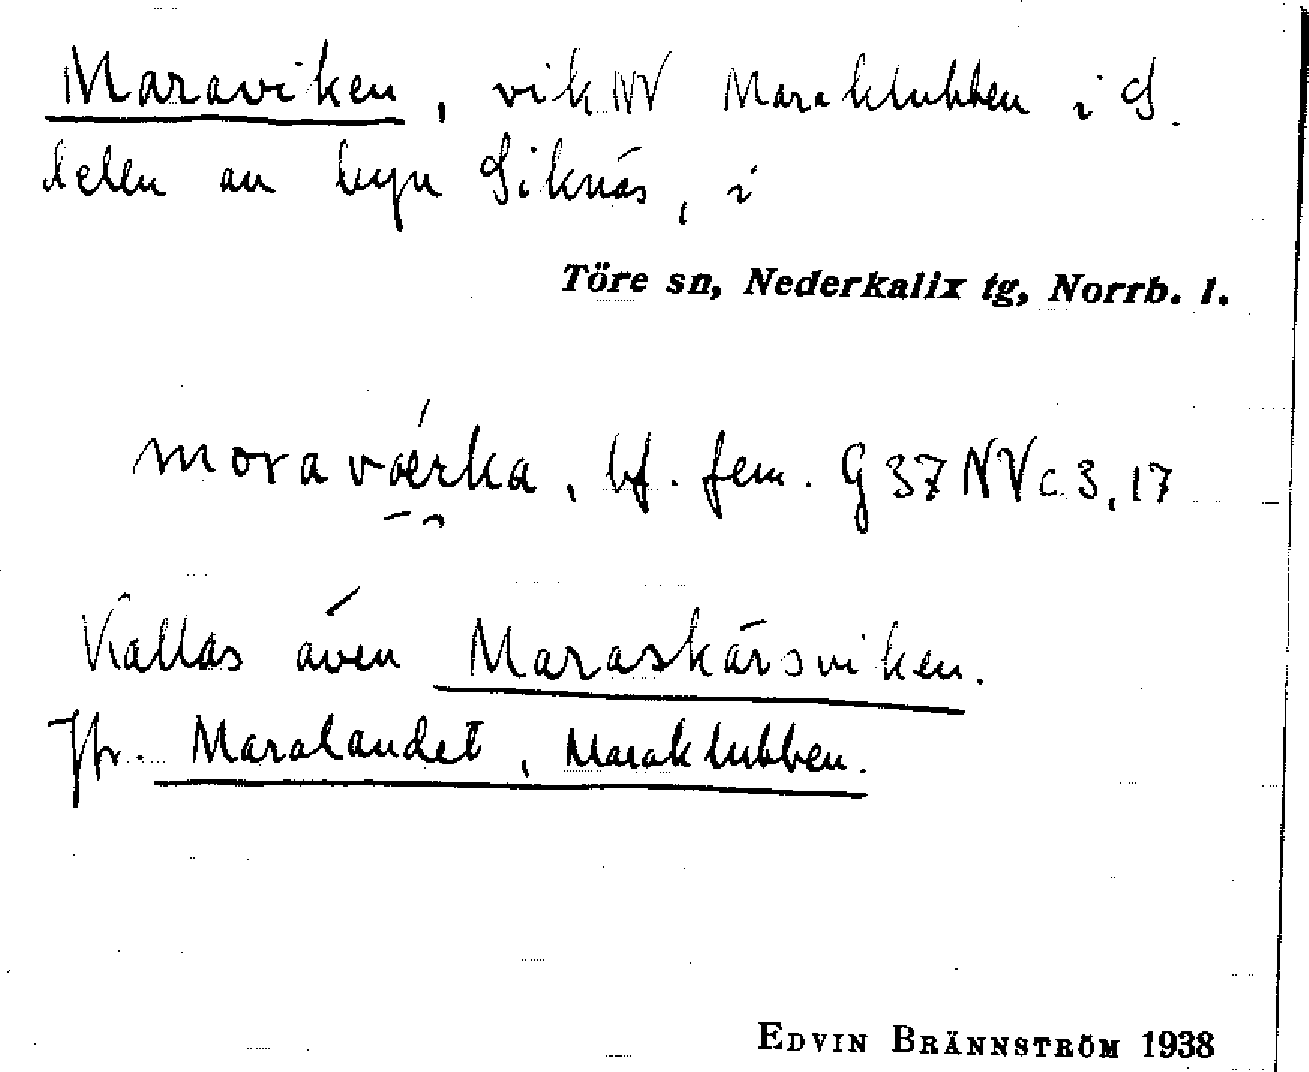 Maraviken, vik NV Maraklubben i S.
delen av byn Siknäs, i
Töre sn, Nederkalix tg, Norrb. l.
moravóerka, bf. fem. G 37 NV c 3, 17
Kallas även Maraskärsviken.
Jfr. Maralandet, Maraklubben.
EDVIN BRÄNNSTRÖM 1938